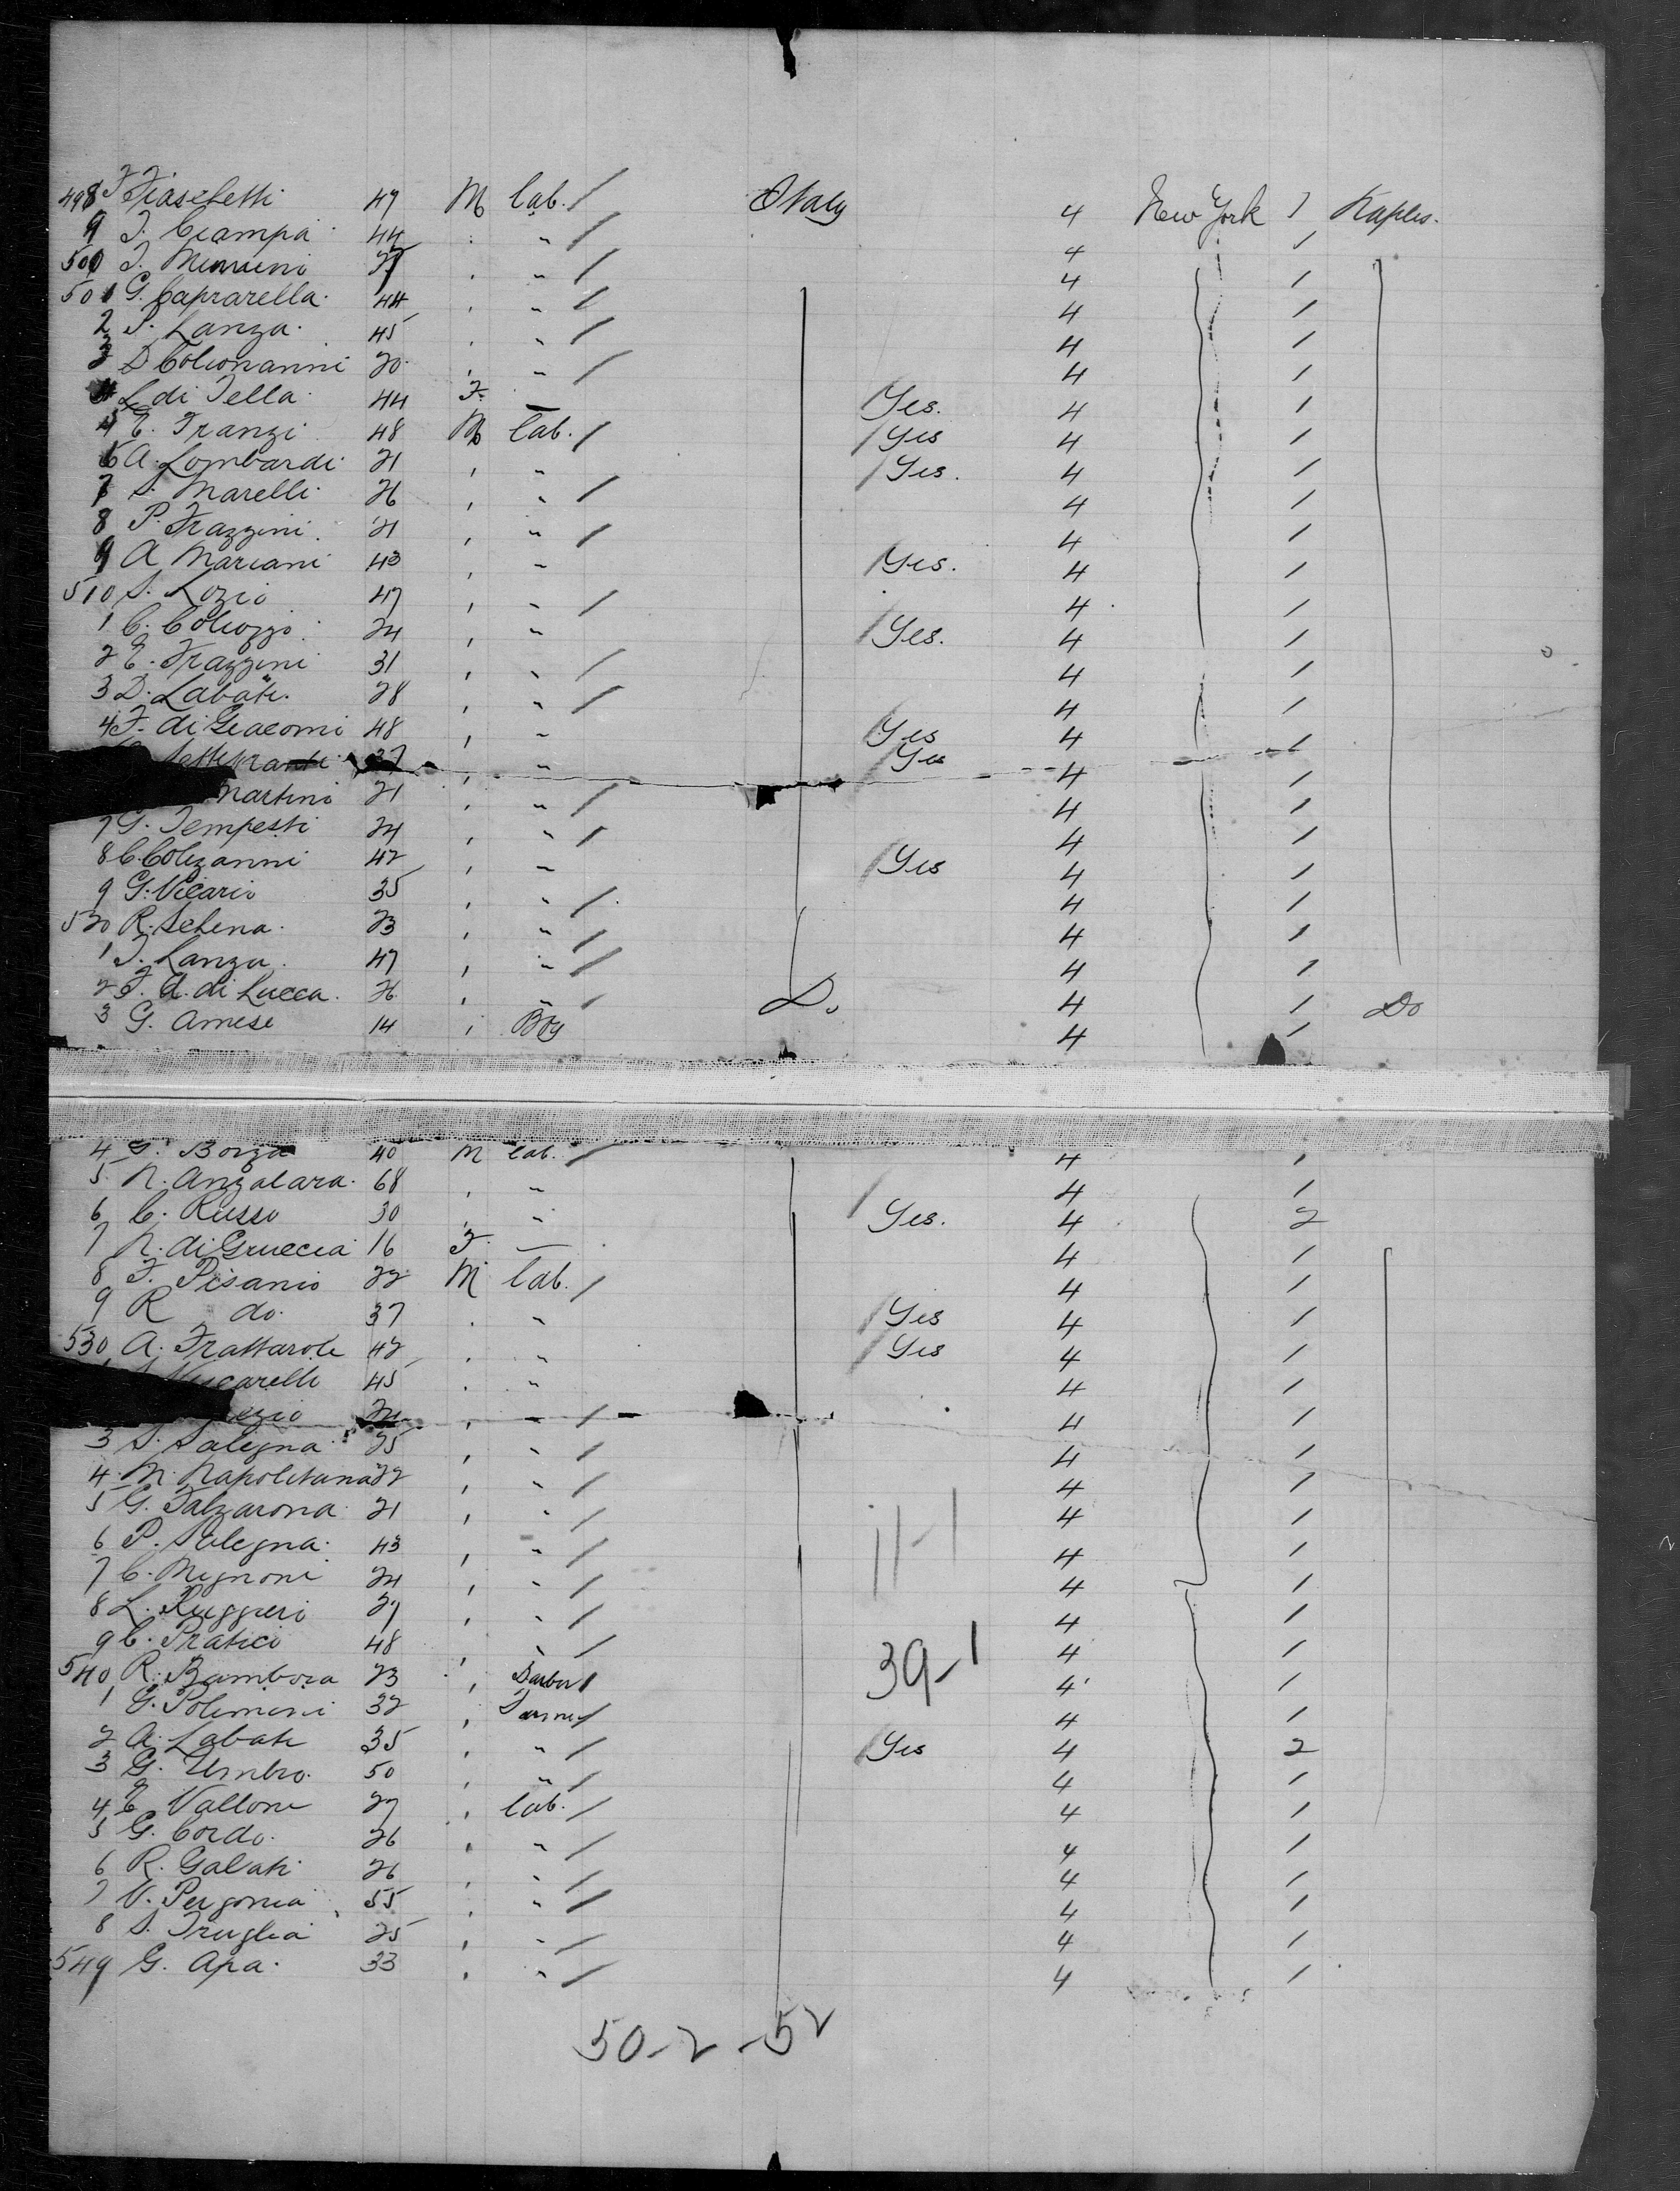 498 F Fiaschetti 47 M lab. / Italy 4 New York 1 Naples.
9 F. Ciampa 44 " / 4 1
500 " / 4 1
501 G. Caprarella 44 " / 4 1
2 P. Lanza 45 " / 4 1
3 D 20 " / 4 1
L di Tella 44 F. — Yes. 4 1
E. Franzi 48 M lab. / Yes 4 1
6 A. Lombardi 21 " Yes. 4 1
7 S. Marelli 26 " / 4 1
8 P. Frazzini 21 " / 4 1
9 A Mariani 43 " Yes. 4 1
510 S. Lozio 47 " / 4 1
1 C. Coliozzo 24 " Yes. 4 1
2 E. Frazzini 31 " / 4 1
3 D. Labate. 28 " / 4 1
4 F. di Giacomi 48 " Yes 4 1
37 " Yes 4 1
Martini 21 " / 4 1
7 G. Tempesti 24 " / 4 1
8 C. Colizanni 42 " Yes 4 1
9 G. Vicario 35 " / 4 1
520 R. Schena 23 " / 4 1
1 F. Lanza 47 " / 4 1
2 F. A. di Lucca. 26 " / Do 4 1 Do
3 G. Amese 14 " Boy 4 1
4 Borza 40 M lab. / 4 1
5 N. Anzalara. 68 " / 4 1
6 C. Russo 30 " Yes. 4 2
7 N. di Gruccia 16 F. — 4 1
8 F. Pisanio 22 M lab. / 4 1
9 R do. 37 " Yes 4 1
530 A. Frattarole 42 " Yes 4 1
45 " 4 1
24 " / 4 1
3 S. Salegna 25 " / 4 1
4 M. Napolitana 22 " / 4 1
5 G. Falzarona 21 " / 4 1
6 P. Salegna 43 " / 4 1
7 C. Mignoni 24 " / 4 1
8 L. Ruggieri 27 " / 4 1
9 C. Pratico 48 " / 4 1
39-1
540 R. Bambora 23 Barber / 4 1
1 G. Polimeni 32 Farmer / 4 1
2 A. Labate 35 " / Yes 4 2
3 G. Umbro. 50 " / 4 1
4 E Vallone 27 lab. / 4 1
5 G. Cordo. 26 " / 4 1
6 R. Galati 26 " / 4 1
7 V. 55 " / 4 1
8 S. Truglia 25 " / 4 1
549 G. Apa. 33 " / 4 1
50-2-52